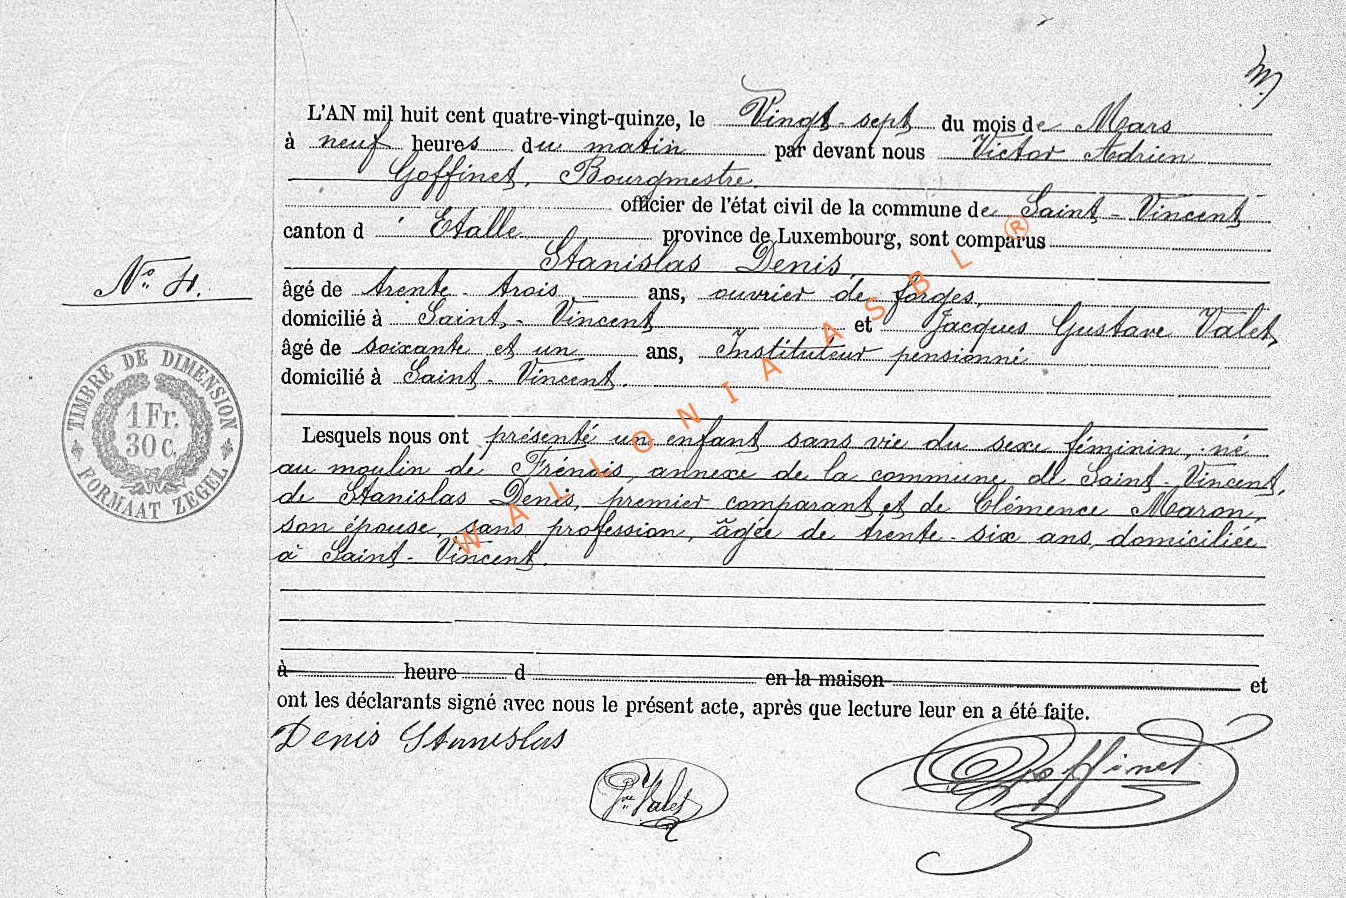 L'AN mil huit cent quatre-vingt-quinze, le Vingt-sept du mois de Mars
à neuf heures du matin par devant nous Victor Adrien
Goffinet, Bourgmestre
officier de l'état civil de la commune de Saint-Vincent
canton d'Etalle province de Luxembourg, sont comparus
Stanislas Denis,
âgé de trente-trois ans, ouvrier de forges,
domicilié à Saint-Vincent et Jacques Gustave Valet,
âgé de soixante et un ans, Instituteur pensionné
domicilié à Saint-Vincent.
Lesquels nous ont présenté un enfant sans vie du sexe féminin, né
au moulin de Frénois, annexe de la commune de Saint-Vincent,
de Stanislas Denis, premier comparant et de Clémence Maron,
son épouse, sans profession, âgée de trente-six ans, domiciliée
à Saint-Vincent.
à heure d en la maison et
ont les déclarants signé avec nous le présent acte, après que lecture leur en a été faite.
Denis Stanislas
Valet
Goffinet
No. 4.
TIMBRE DE DIMENSION
1 Fr.
30 c.
FORMAAT ZEGEL
WALLONIA ASBL ®